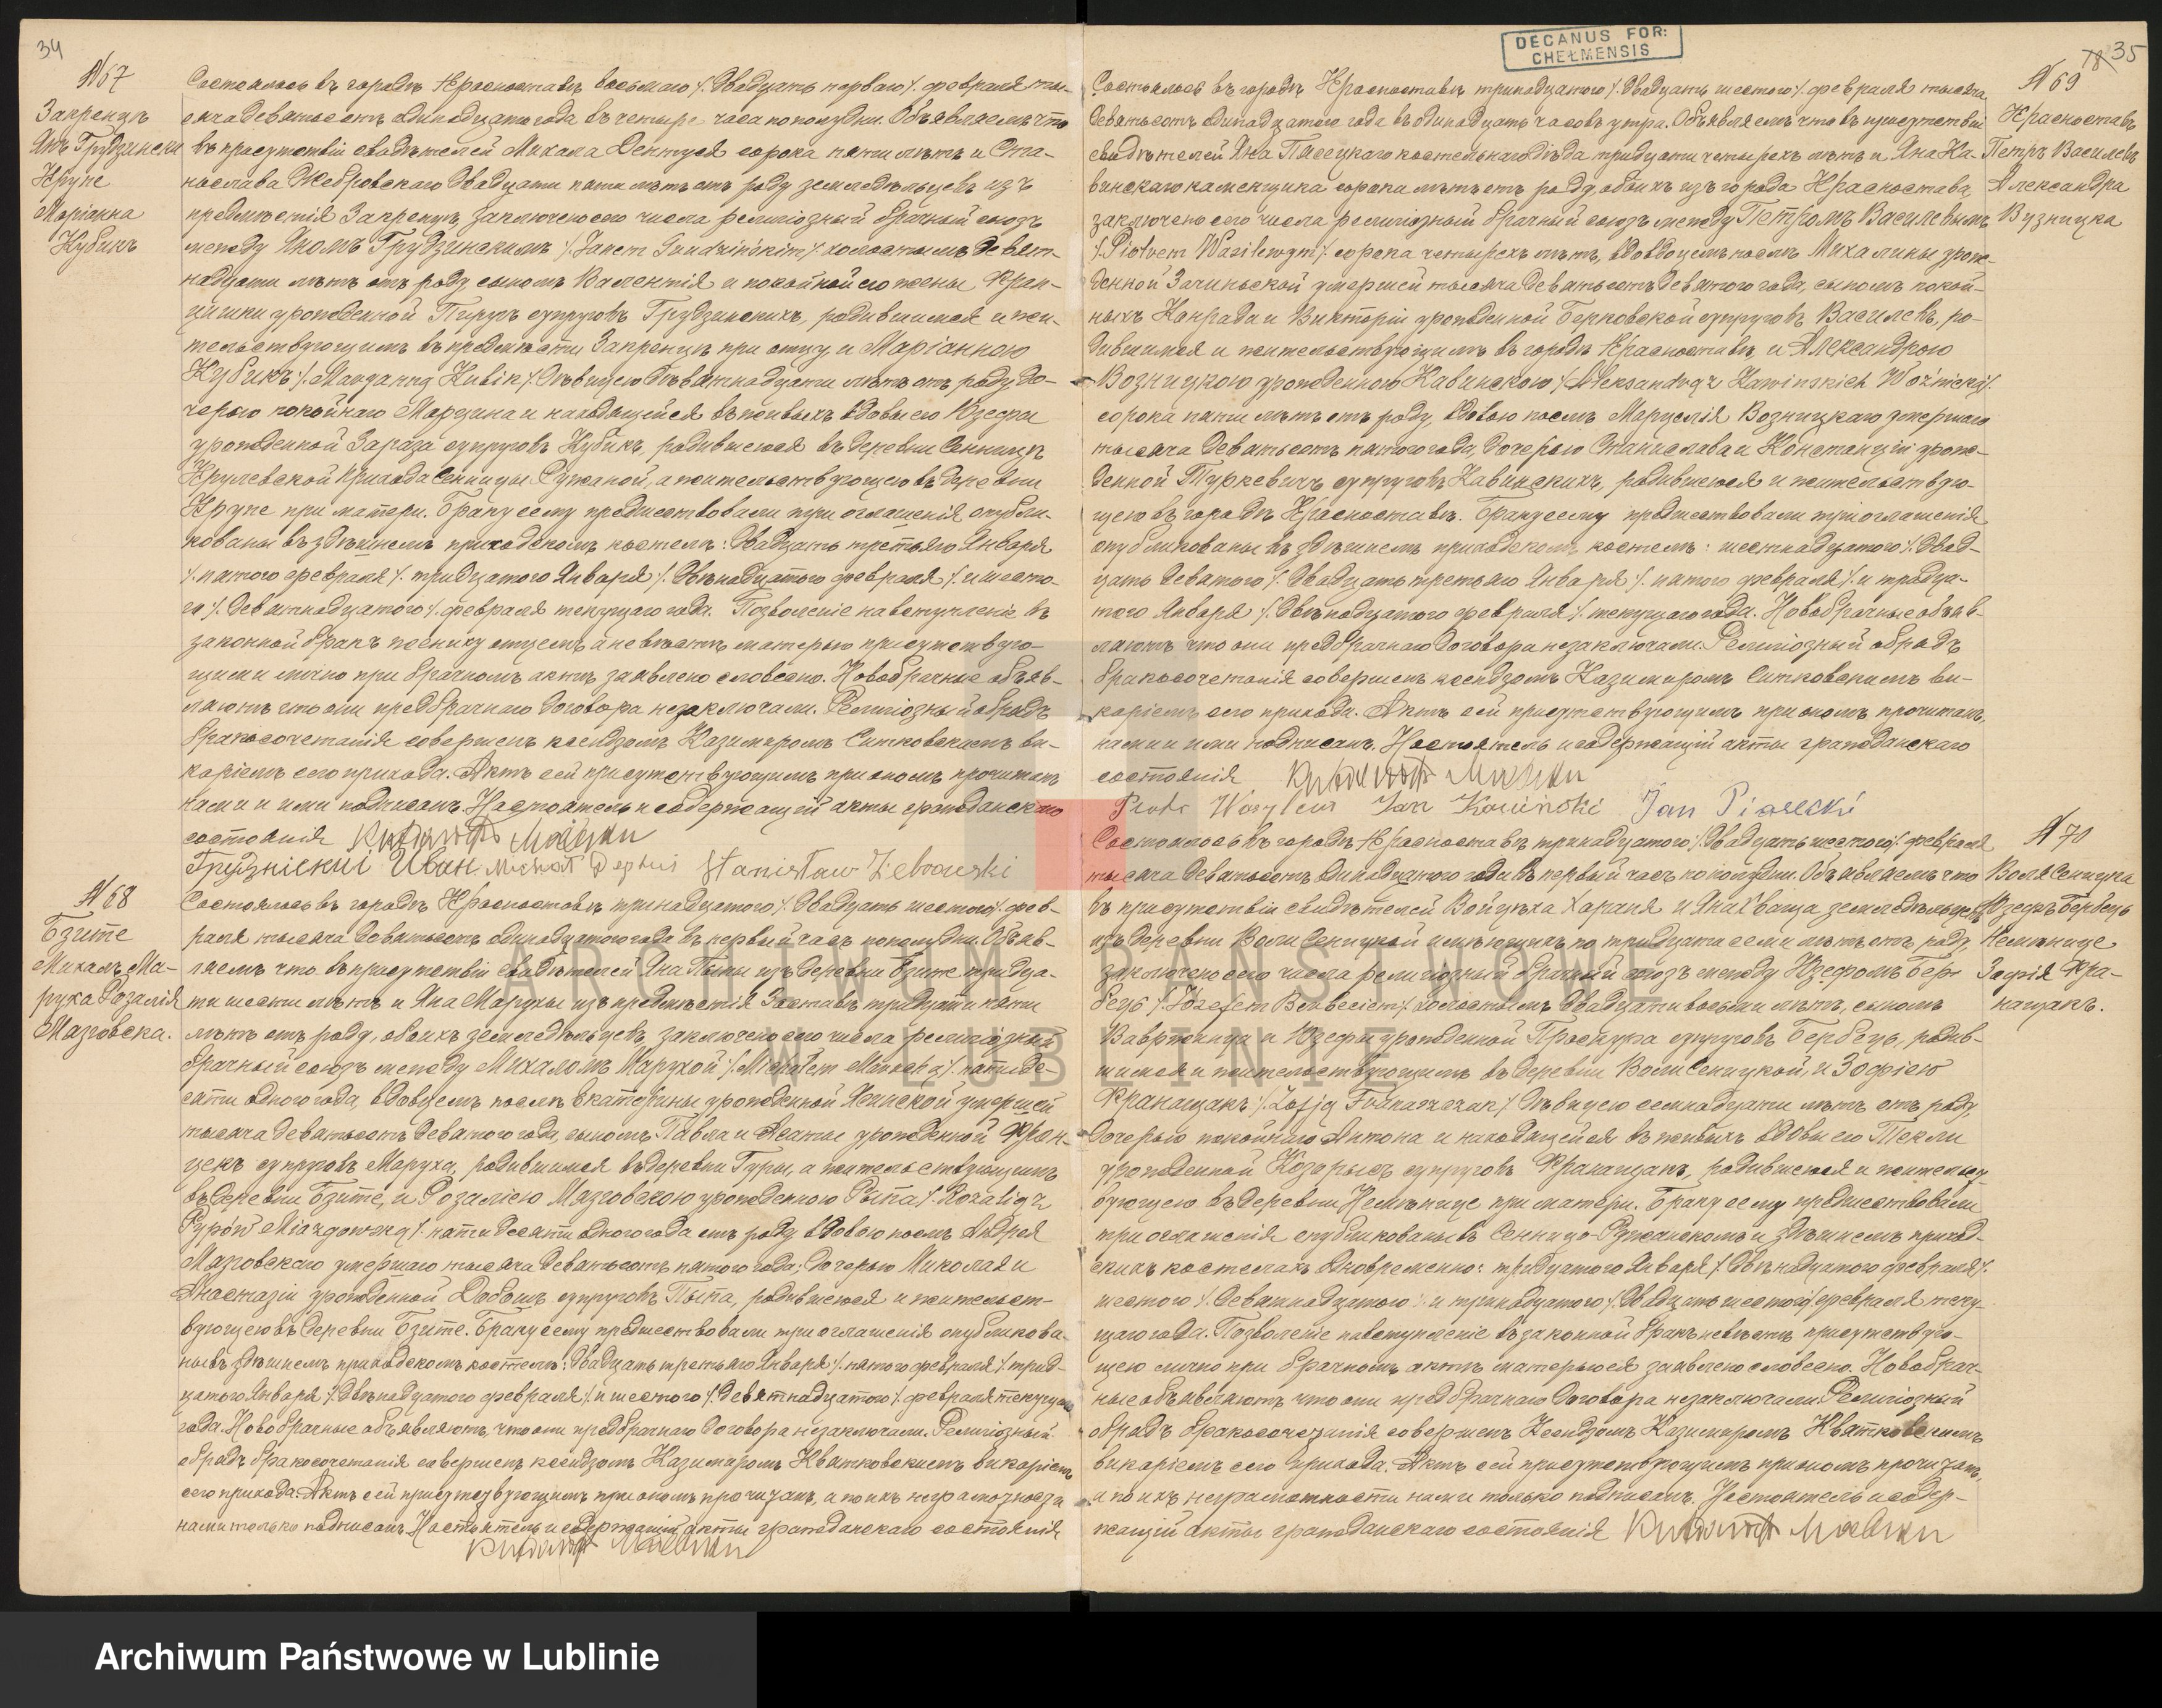 34
№ 67
Закренцъ
Янъ Грудзински
Крупе
Маріанна
Кубикъ
Состоялось въ городѣ Красноставѣ восьмаго /. двадцать перваго /. февраля ты-
сяча девятьсотъ одинадцатого года въ четыре часа пополудни. Объявляемъ что
въ присутствіи свидѣтелей Михала Дептуся сорока пяти лѣтъ и Ста-
нислава Жебровскаго двадцати пяти лѣтъ отъ роду земледѣльцевъ изъ
предмѣстія Закренцъ, заключенъ сего числа религіозный брачный союзъ
между Яномъ Грудзинскимъ /. Janem Grudzińskim /. холостымъ девят-
надцати лѣтъ отъ роду, сыномъ Валентія и покойной его жены Фран-
цишки урожденной Пируг супруговъ Грудзинскихъ, родившимся и жи-
тельствующимъ въ предмѣстіи Закренцѣ при отцу и Маріанною
Кубикъ /. Maryanną Kubik /. дѣвицею девятнадцати лѣтъ отъ роду до-
черью покойнаго Марцина и находящейся въ живыхъ вдовы его Юзефы
урожденной Зараза супруговъ Кубикъ, родившеюся въ деревни Сенницѣ
Крулевской прихода Сенницы Ружаной, а жительствующею въ деревни
Крупе при матери. Браку сему предшествовали три оглашенія опубли-
кованы въ здѣшнемъ приходскомъ костелѣ: двадцать третьяго Января
/. пятого февраля /. тридцатого Января /. двѣнадцатого февраля /. и шесто-
го /. девятнадцатого /. февраля текущаго года. Позволеніе на вступленіе въ
законной бракъ жениху отцемъ а невѣстѣ матерью присутствую-
щими лично при брачномъ актѣ заявлено словесно. Новобрачные объяв-
ляютъ что они предбрачнаго договора незаключали. Религіозный обрядъ
бракосочетанія совершенъ ксендзомъ Казимиромъ Ситковскимъ ви-
каріемъ сего прихода. Актъ сей присутствующимъ при ономъ прочитанъ
нами и ими подписанъ. Настоятель и содержащій акты гражданскаго
состоянія
Иван Michał Deptuś Stanisław Żebrowski
№ 68
Бзите
Михалъ Ма-
руха Розалія
Мазговска.
Состоялось въ городѣ Красноставѣ тринадцатого /. двадцать шестого /. фев-
раля тысяча девятьсотъ одинадцатого года въ первый часъ пополудни. Объяв-
ляемъ что въ присутствіи свидѣтелей Яна Пыпы изъ деревни Бзите тридца-
ти шести лѣтъ и Яна Марухы изъ предмѣстія Заставъ тридцати пяти
лѣтъ отъ роду, обоихъ земледѣльцевъ, заключенъ сего числа религіозный
брачный союзъ между Михаломъ Марухой /. Michałem Maruchą /. пятиде-
сяти одного года, вдовцемъ послѣ Екатерины урожденной Ясинской умершей
тысяча девятьсотъ девятого года, сыномъ Павла и Агаты урожденной Фран-
цекъ супруговъ Маруха, родившимся въ деревни Гуры, а жительствующимъ
въ деревни Бзите, и Розаліею Мазговскою урожденною Рыпа /. Rozalią z
/. пятидесяти одного года отъ роду вдовою послѣ Андрея
Мазговскаго умершаго тысяча девятьсотъ пятого года; дочерью Миколая и
Анастазіи урожденной супруговъ Пыпа, родившеюся и жительст-
вующею въ деревни Бзите. Браку сему предшествовали три оглашенія опубликова-
ны въ здѣшнемъ приходскомъ костелѣ: двадцать третьяго Января /. пятого февраля /. трид-
цатого Января /. двѣнадцатого февраля /. и шестого /. девятнадцатого /. февраля текущаго
года. Новобрачные объявляютъ, что они предбрачнаго договора незаключали. Религіозный
обрядъ бракосочетанія совершенъ ксендзомъ Казимиромъ Квятковскимъ викаріемъ
сего прихода. Актъ сей присутствующимъ при ономъ прочитанъ, а по ихъ неграмотности
нами только подписанъ. Настоятель и содержащій акты гражданскаго состоянія
DECANUS FOR:
CHEŁMENSIS
78 35
№ 69
Красноставъ
Петръ Василевъ
Александра
Возницка
Состоялось въ городѣ Красноставѣ тринадцатого /. двадцать шестого /. февраля тысяча
девятьсотъ одинадцатого года въ одинадцать часовъ утра. Объявляемъ что въ присутствіи
свидѣтелей Яна Пясецкаго костельнаго дѣда тридцати четырехъ лѣтъ и Яна Ка-
винскаго каменщика сорока лѣтъ отъ роду, обоихъ изъ города Красностава,
заключенъ сего числа религіозный брачный союзъ между Петромъ Василевымъ
/. Piotrem Wasilewym /. сорока четырехъ лѣтъ, вдовцемъ послѣ Михалины урож-
денной Зачинской умершей тысяча девятьсотъ девятого года, сыномъ покой-
ныхъ Конрада и Викторіи урожденной Берковской супруговъ Василевъ, ро-
дившимся и жительствующимъ въ городѣ Красноставѣ, и Александрою
Возницкою урожденною Кавинскою /. Aleksandrą z Kawinskich Woźnicką /.
сорока пяти лѣтъ отъ роду, вдовою послѣ Марцелія Возницкаго умершаго
тысяча девятьсотъ пятого года, дочерью Станислава и Констанціи урож-
денной Туркевичъ супруговъ Кавинскихъ, родившеюся и жительствую-
щею въ городѣ Красноставѣ. Браку сему предшествовали три оглашенія
опубликованы въ здѣшнемъ приходскомъ костелѣ: шестнадцатого /. двад-
цать девятого /. двадцать третьяго Января /. пятого февраля /. и тридца-
того Января /. двѣнадцатого февраля /. текущаго года. Новобрачные объяв-
ляютъ что они предбрачнаго договора незаключали. Религіозный обрядъ
бракосочетанія совершенъ ксендзомъ Казимиромъ Ситковскимъ ви-
каріемъ сего прихода. Актъ сей присутствующимъ при ономъ прочитанъ,
нами и ими подписанъ. Настоятель и содержащій акты гражданскаго
состоянія
Piotr Wasylew Jan Kawiński Jan Piasecki
№ 70
Воля Сеницка
Юзефъ Бербець
Немѣнице
Зофія Фра-
нащакъ.
Состоялось въ городѣ Красноставѣ тринадцатого /. двадцать шестого /. февраля
тысяча девятьсотъ одинадцатого года въ первый часъ пополудни. Объявляемъ что
въ присутствіи свидѣтелей Войцѣха Хараня и Яна земледѣльцевъ
изъ деревни Воли Сеницкой имѣющихъ по тридцати семи лѣтъ отъ роду,
заключенъ сего числа религіозный брачный союзъ между Юзефомъ Бер-
бець /. Józefem Berbeciem /. холостымъ двадцати восьми лѣтъ, сыномъ
Вавржинца и Юзефы урожденной супруговъ Бербець, родив-
шимся и жительствующимъ въ деревни Воли Сеницкой, и Зофіею
Франащакъ /. Zofią Franaszczak /. дѣвицею семнадцати лѣтъ отъ роду,
дочерью покойнаго Антона и находящейся въ живыхъ вдовы его Текли
урожденной Козарысъ супруговъ Франащакъ, родившеюся и жительст-
вующею въ деревни Немѣнице при матери. Браку сему предшествовали
три оглашенія опубликованы въ Сенницо-Ружанскомъ и здѣшнемъ приход-
скихъ костелахъ одновременно: тридцатого Января /. двѣнадцатого февраля /.
шестого /. девятнадцатого /. и тринадцатого /. двадцать шестого /. февраля теку-
щаго года. Позволеніе на вступленіе въ законной бракъ невѣстѣ присутствую-
щею лично при брачномъ актѣ матерью ея заявлено словесно. Новобрач-
ные объявляютъ что они предбрачнаго договора незаключали. Религіозный
обрядъ бракосочетанія совершенъ Ксендзомъ Казимиромъ Квятковскимъ
викаріемъ сего прихода. Актъ сей присутствующимъ при ономъ прочитанъ,
а по ихъ неграмотности нами только подписанъ. Настоятель и содер-
жащій акты гражданскаго состоянія
ARCHIWUM PAŃSTWOWE
W LUBLINIE
Archiwum Państwowe w Lublinie